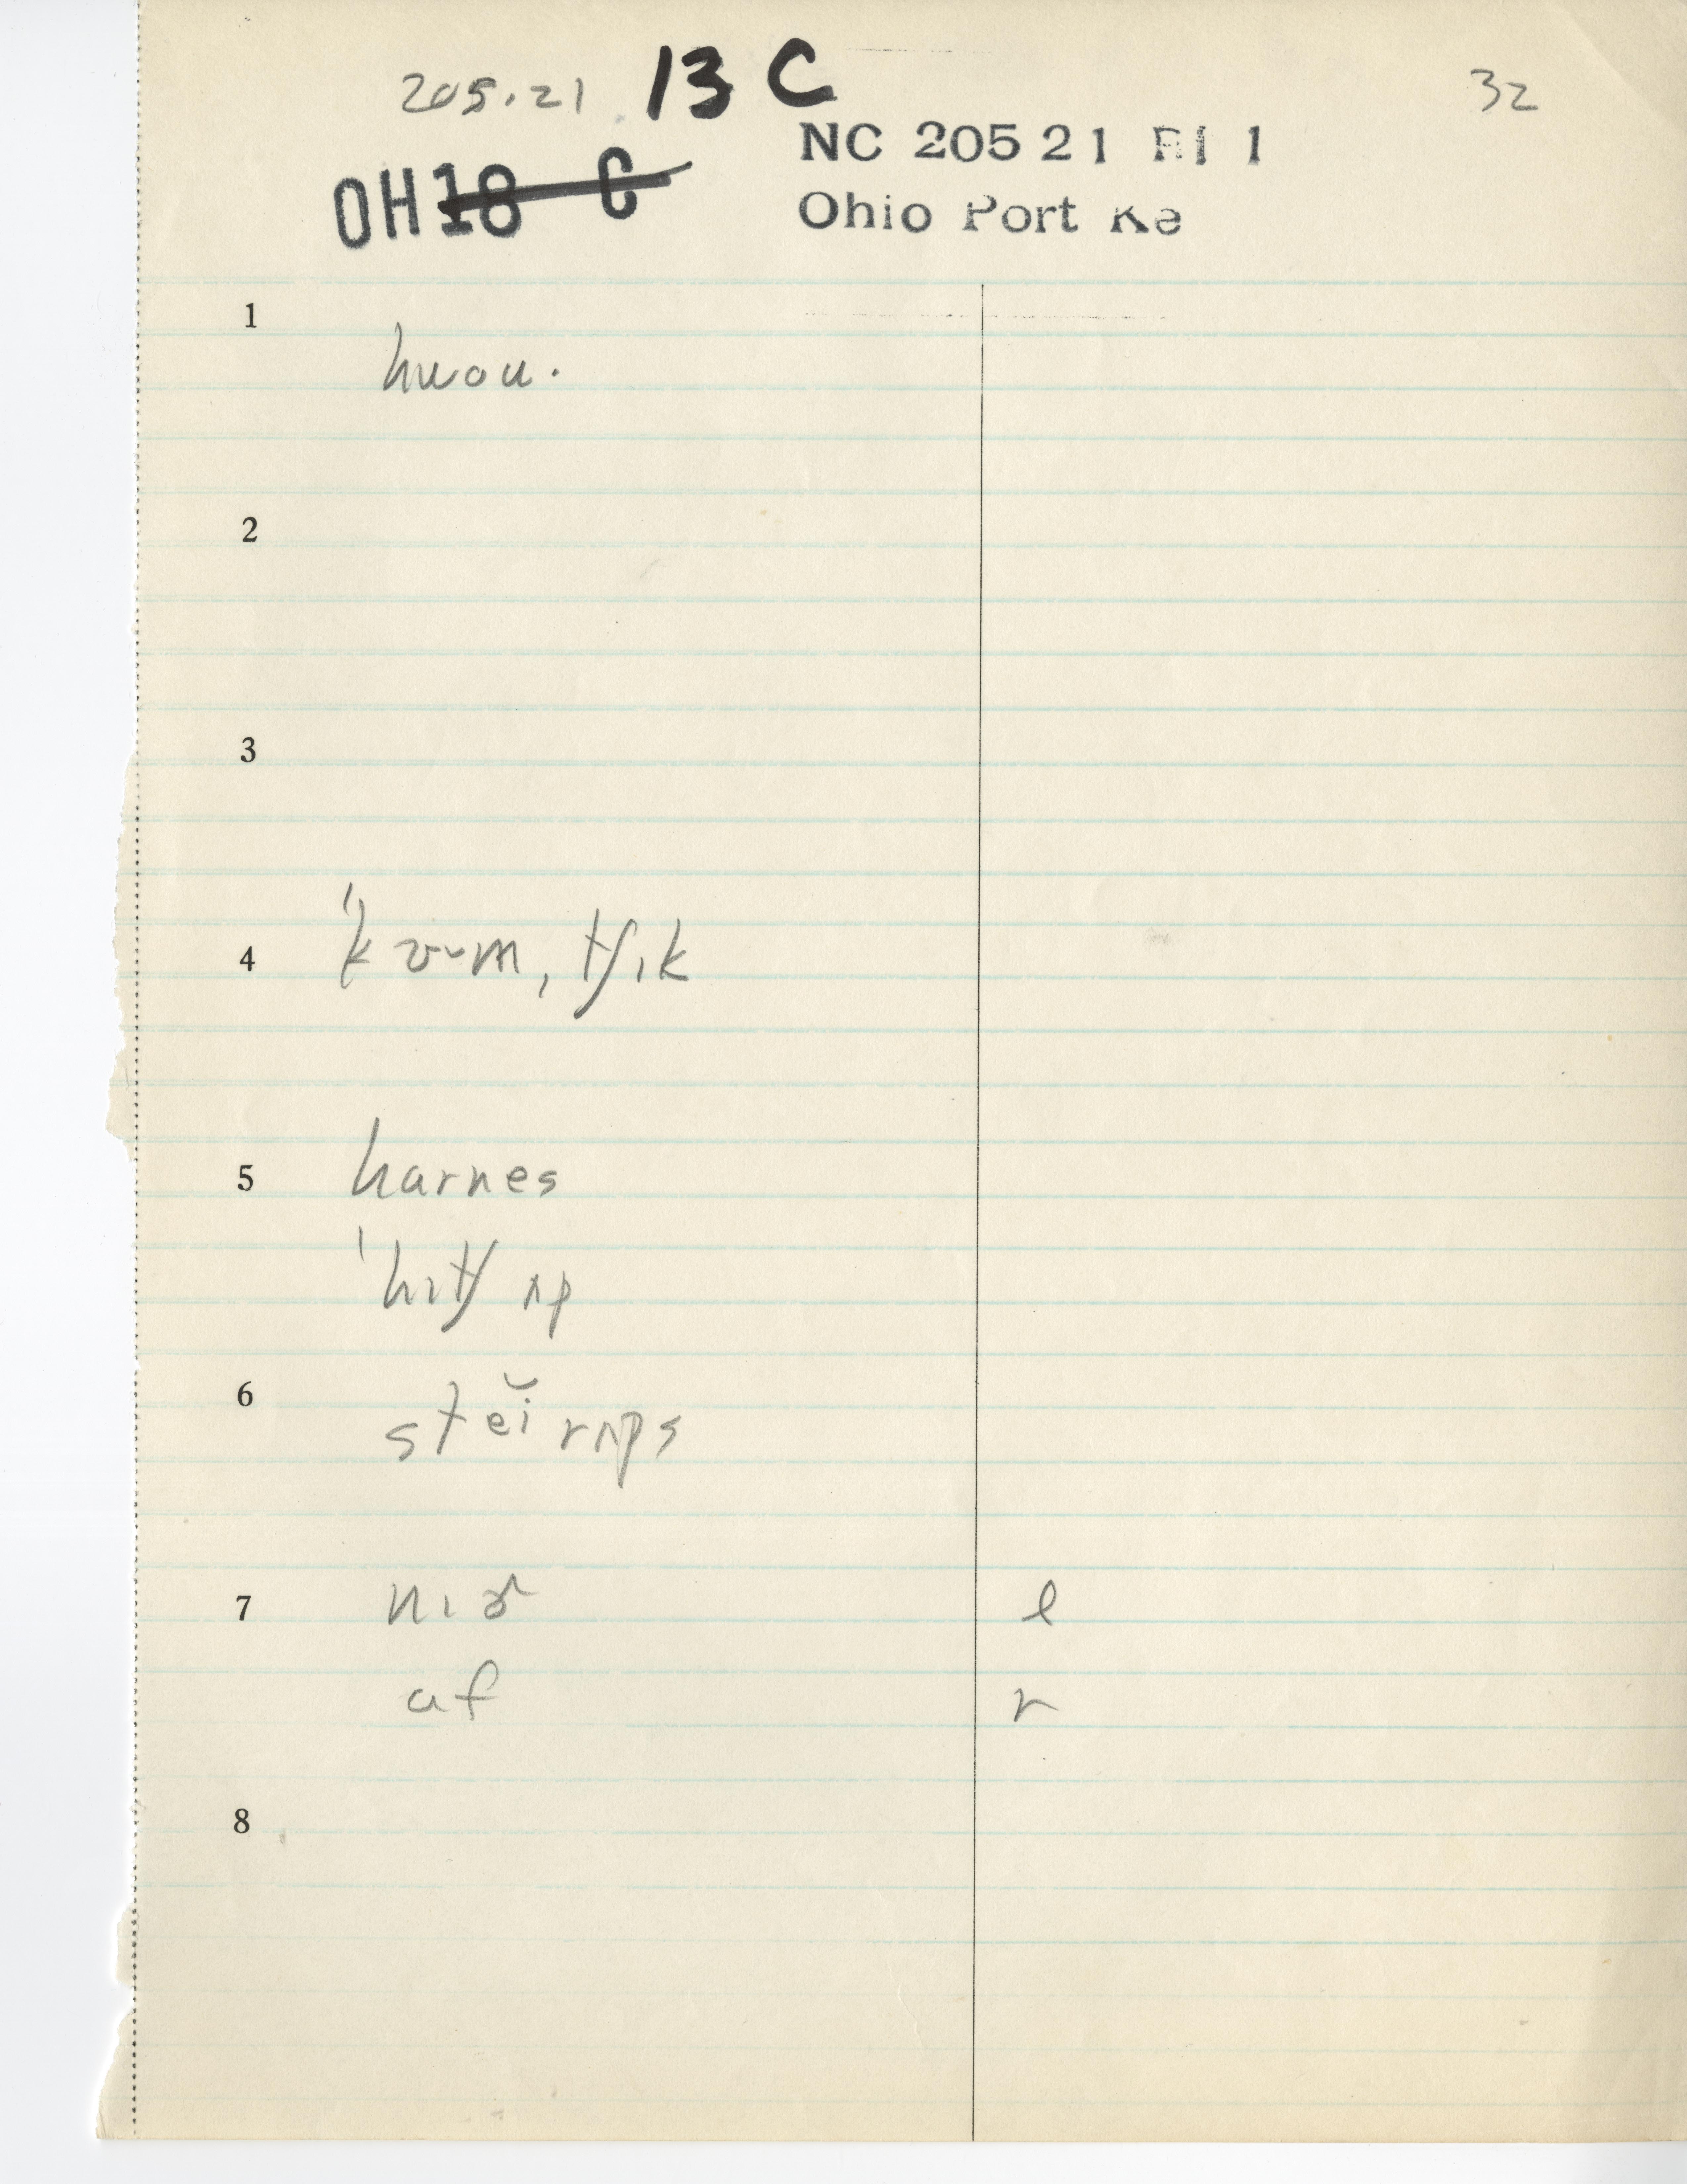 205.21 13 C 32
NC 205 21 Ri 1
OH 18 C
Ohio Port Ke
1
hwou.
2
3
4 ˈkʊ‿m, tʃɪk
5 harnes
ˈhɪtʃ ʌp
6
stei̯ rʌps
7 nɪɚ l
af r
8